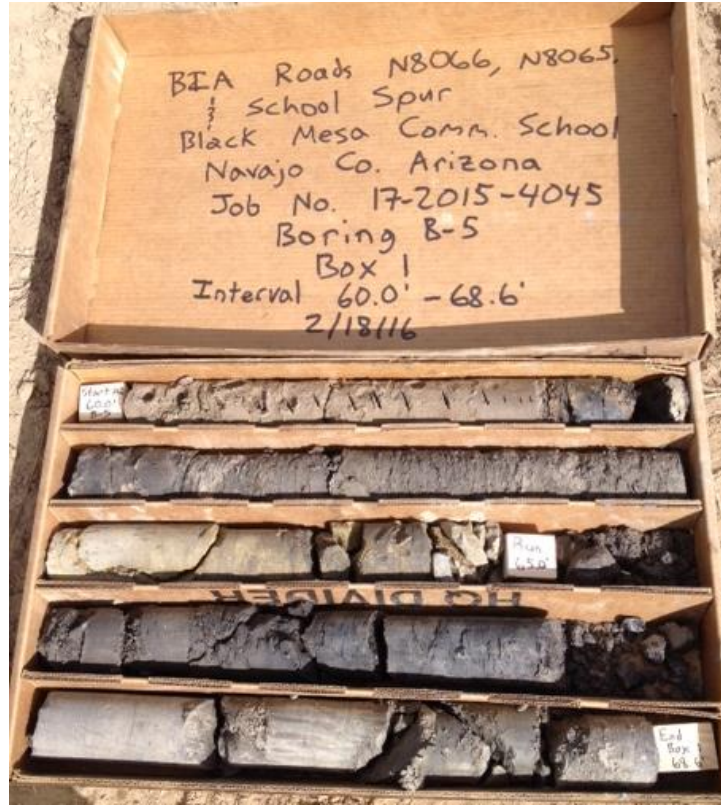 BIA Roads N8066, N8065,
& School Spur
Black Mesa Comm. School
Navajo Co. Arizona
Job No. 17-2015-4045
Boring B-5
Box 1
Interval 60.0' - 68.6'
2/18/16
Start
60.0'
B-5
Run
65.0'
HQ DIVIDER
End
Box 1
68.6'